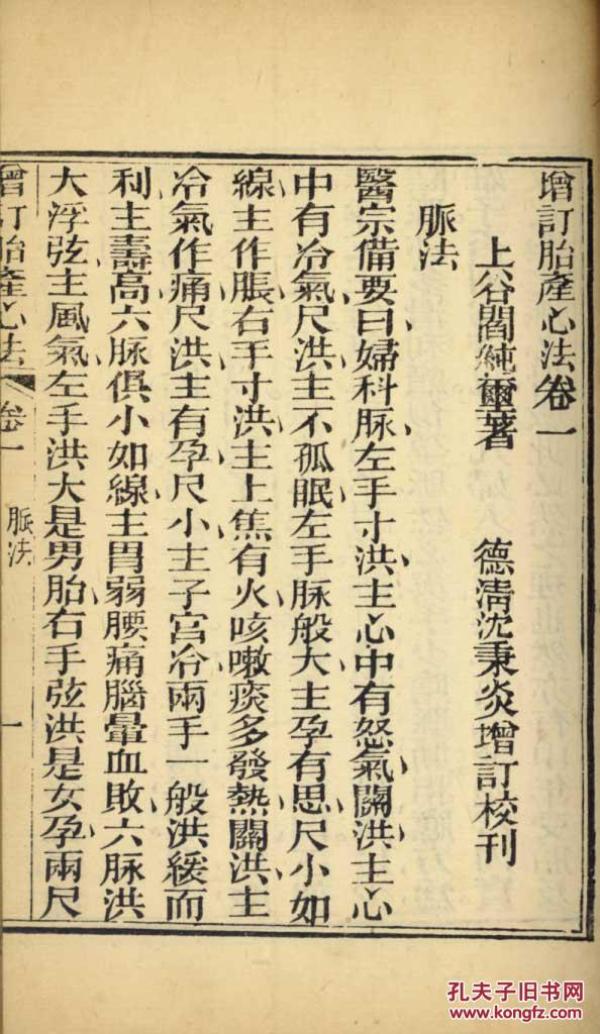 增訂胎產心法卷一
上谷閻純璽著　德清沈秉炎增訂校刊
脈法
醫宗備要曰婦科脉左手寸洪主心中有怒氣關洪主心
中有冷氣尺洪主不孤眠左手脉般大主孕有思尺小如
線主作脹右手寸洪主上焦有火咳嗽痰多發熱關洪主
冷氣作痛尺洪主有孕尺小主子宮冷兩手一般洪緩而
利主壽高六脉俱小如線主胃弱腰痛腦暈血敗六脉洪
大浮弦主風氣左手洪大是男胎右手弦洪是女孕兩尺
增訂胎產心法 卷一 脈法 一
孔夫子旧书网
www.kongfz.com